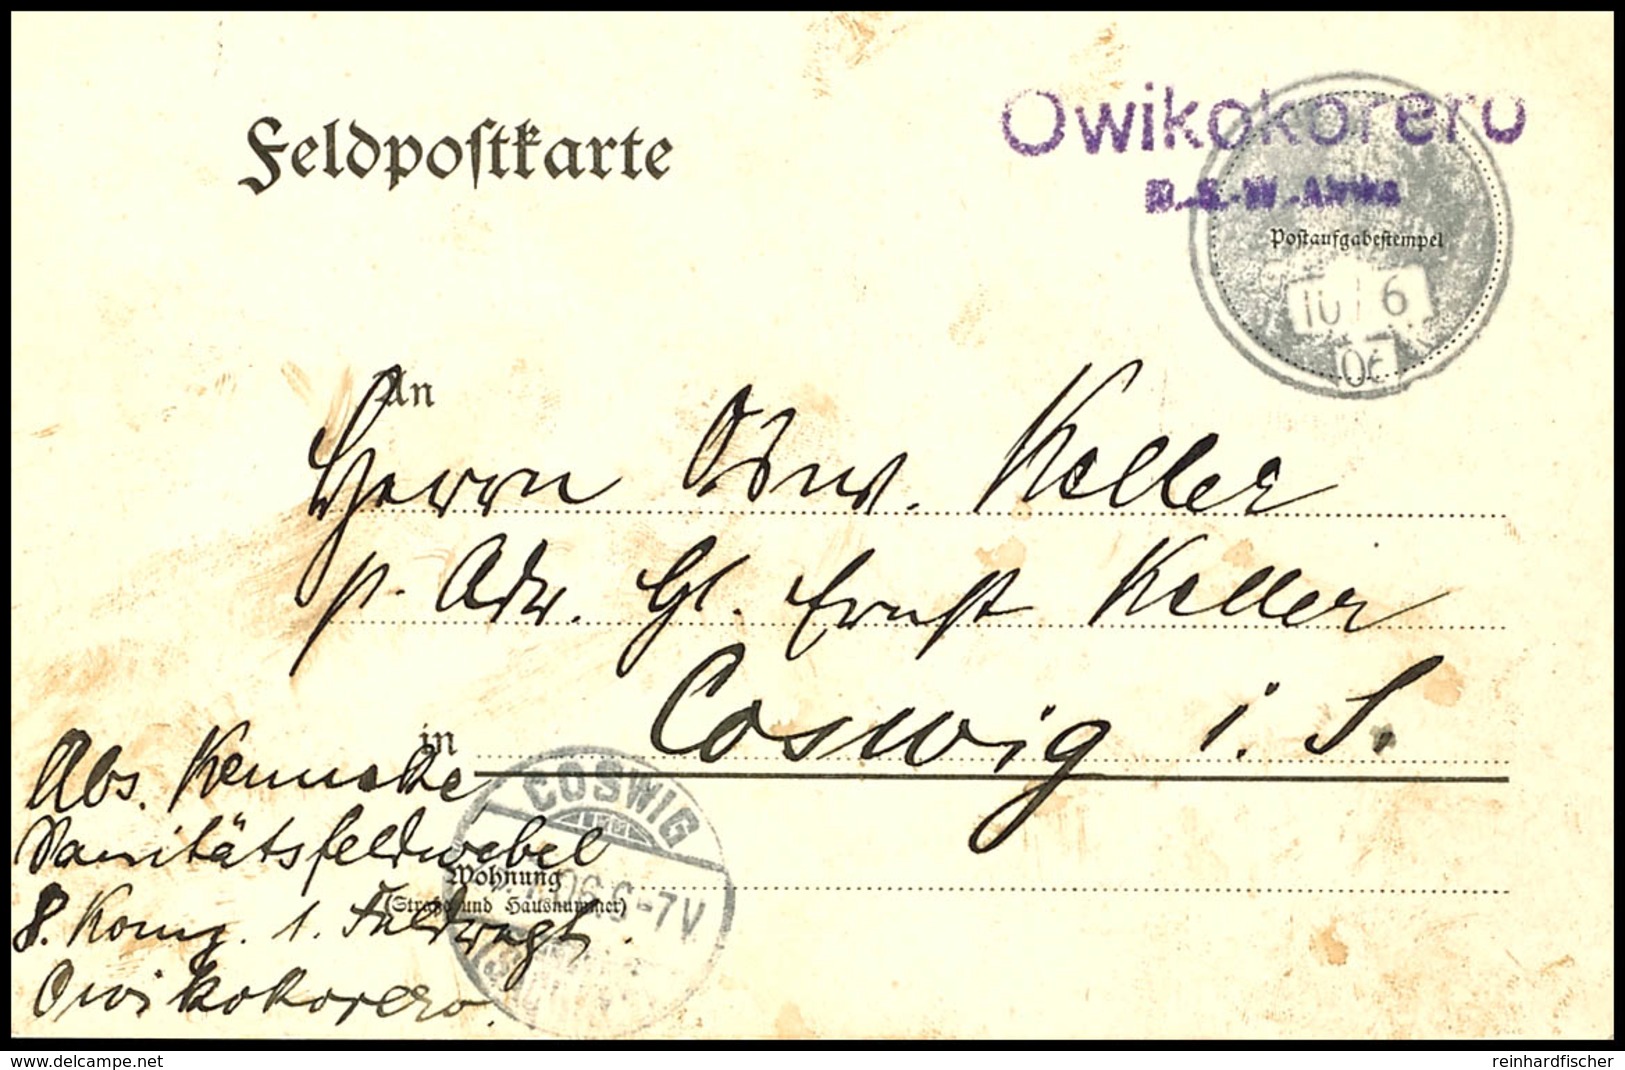 Feldpostkarte
Owikokorero
D.-S.-W.-Afrika
Postaufgabestempel
10 / 6
06
An
Herrn Osw. Keller
p. Adr. Gl. Ernst Keller
in Coswig i. S.
COSWIG
06 6-7V
Wohnung
(Straße und Hausnummer)
Abs. Kennecke
Sanitätsfeldwebel
8. Komp. 1. Feldregt.
Owikokorero.
delcampe.net
reinhardfischer